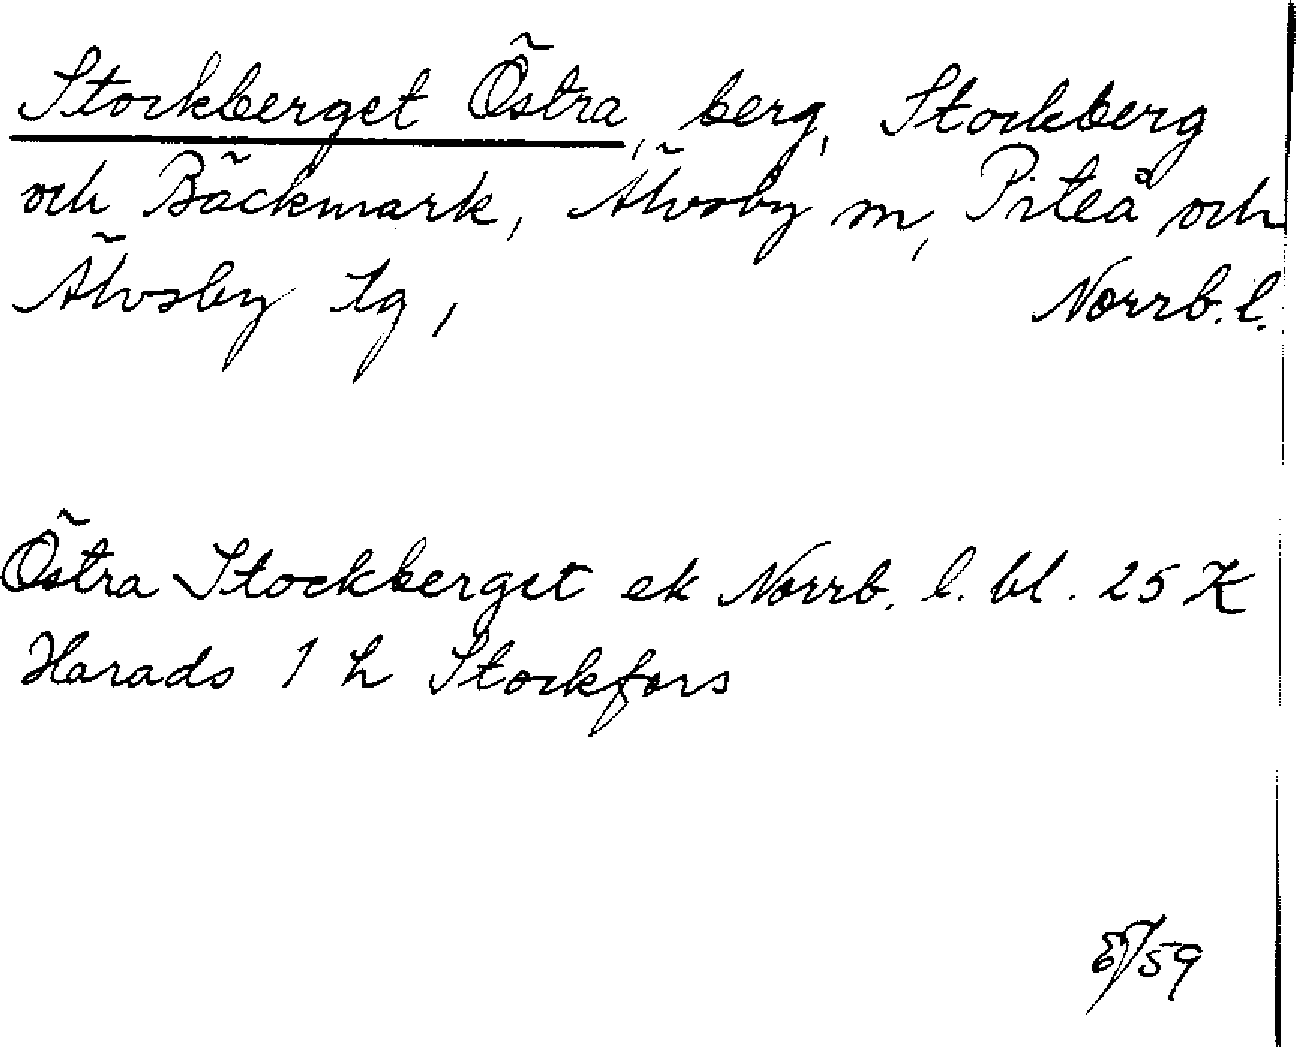 Stockberget Östra, berg, Stockberg
och Bäckmark, Älvsby m, Piteå och
Älvsby tg, Norrb. l.
Östra Stockberget ek Norrb. l. bl. 25 K
Harads 1 h Stockfors
/59